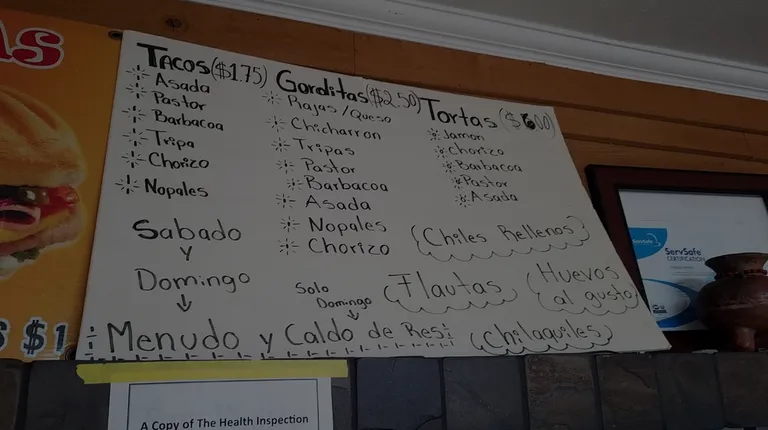 AS
$1
TACOS ($1.75)
Asada
Pastor
Barbacoa
Tripa
Chorizo
Nopales
Sabado
y
Domingo
Gorditas ($2.50)
Rajas/Queso
Chicharron
Tripas
Pastor
Barbacoa
Asada
Nopales
Chorizo
Tortas ($6.00)
Jamon
Chorizo
Barbacoa
Pastor
Asada
(Chiles Rellenos)
Solo
Domingo
Flautas
Huevos
al gusto
Menudo y Caldo de Res
Chilaquiles
ServSafe
CERTIFICATION
A Copy of The Health Inspection